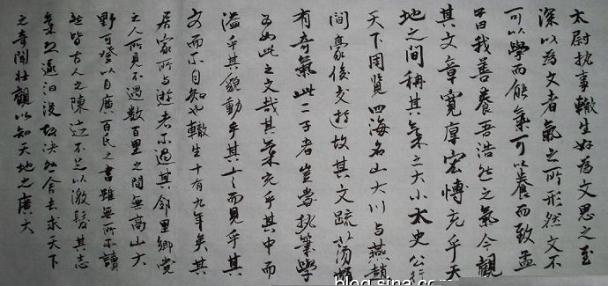 太尉执事辙生好为文思之至
深以为文者气之所形然文不
可以学而能气可以养而致孟
子曰我善养吾浩然之气今观
其文章宽厚宏博充乎天
地之间称其气之大小太史公行
天下周览四海名山大川与燕赵
间豪俊交游故其文疏荡
有奇气此二子者岂尝执笔学
为如此之文哉其气充乎其中而
溢乎其貌动乎其言而见乎其
文而不自知也辙生十有九年矣其
居家所与游者不过其邻里乡党
之人所见不过数百里之间无高山大
野可登以自广百氏之书虽无所不读
然皆古人之陈迹不足以激发其志
气恐遂汩没故决然舍去求天下
之奇闻壮观以知天地之广大
blog.sina.com